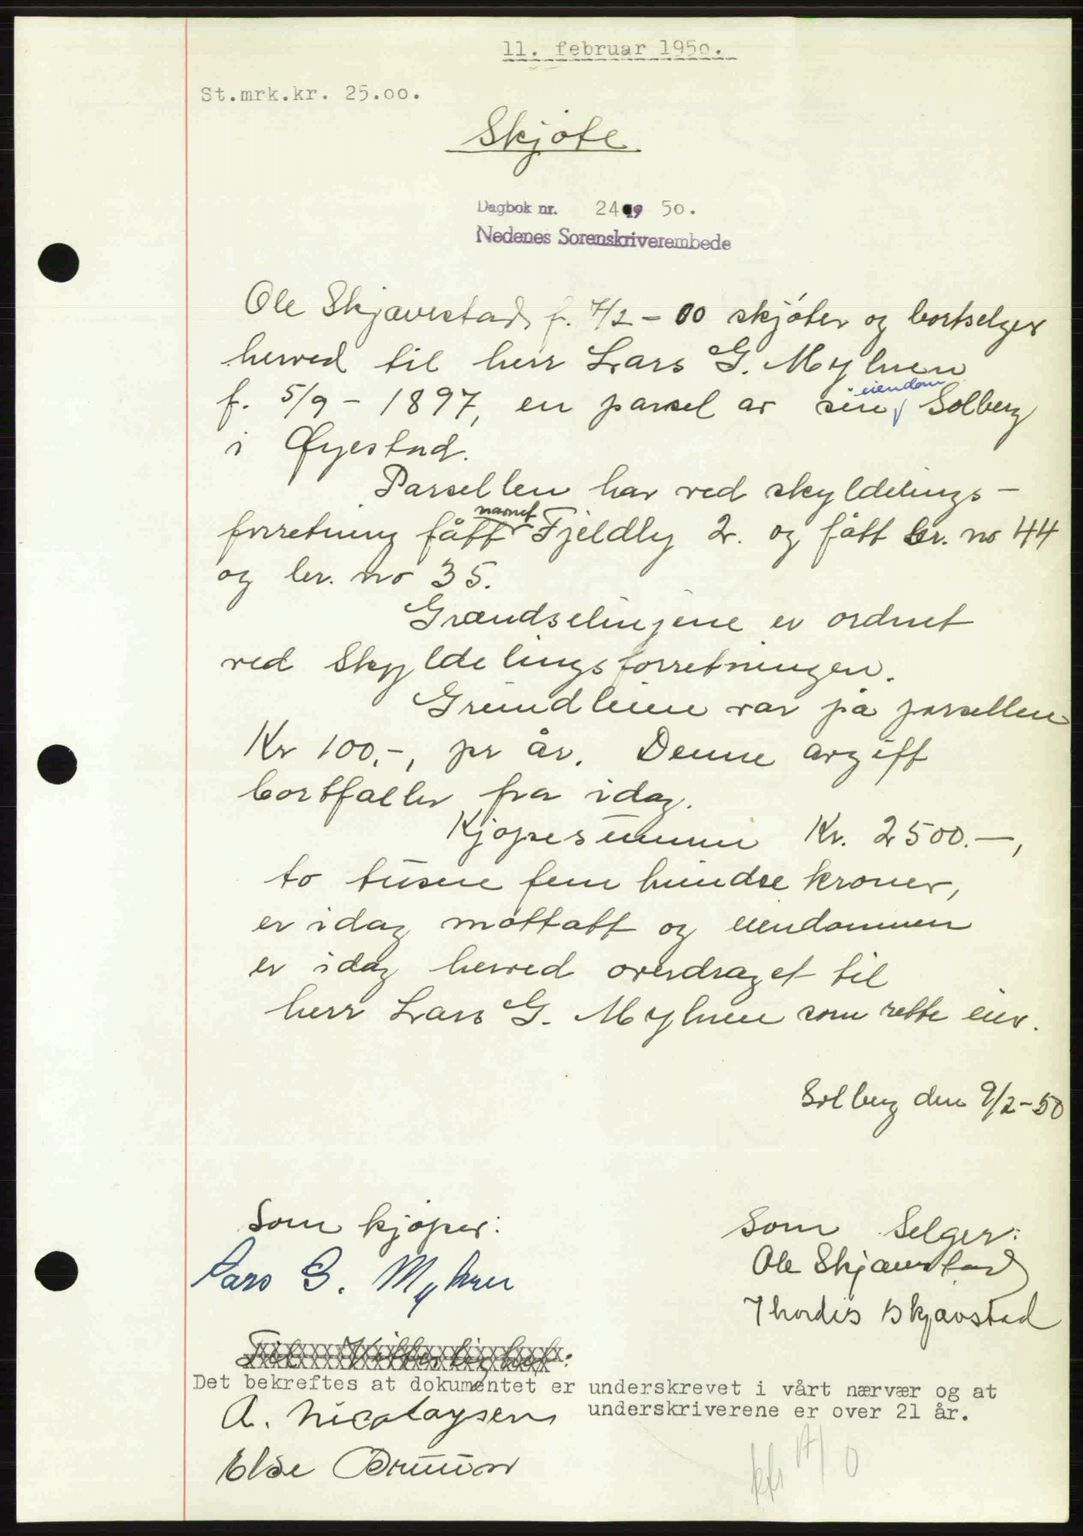 11. februar 1950.
St.mrk.kr. 25.00.
Skjøte
Dagbok nr. 249 50.
Nedenes Sorenskriverembede
Ole Skjævestad, f. 7/2 - 00 skjøter og bortselger
herved til herr Lars G. Myhren
f. 5/9 - 1897, en parsel av sin eiendom Solberg
i Øyestad.
Parsellen har ved skyldelings-
forretning fått navnet Fjeldly 2. og fått gr. no 44
og br. no 35.
Grændselinjene er ordnet
ved Skyldelingsforretningen.
Grundleien var på parsellen
Kr 100,-, pr år. Denne avgift
bortfaller fra idag.
Kjøpesummen Kr. 2500.-,
to tusen fem hundre kroner,
er idag mottatt og eiendommen
er idag herved overdraget til
herr Lars G. Myhren som rette eier.
Solberg den 9/2-50
Som kjøper:
Som Selger:
Lars G. Myhren
Ole Skjævestad
Thordis Skjævstad
Til Vitterlighet:
Det bekreftes at dokumentet er underskrevet i vårt nærvær og at
underskriverene er over 21 år.
A. Nicolaysen
Else